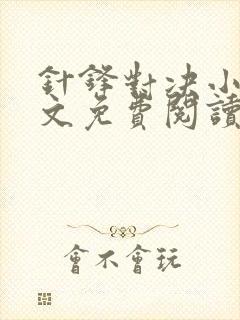 針鋒對决小
文免費閱讀
會不會玩